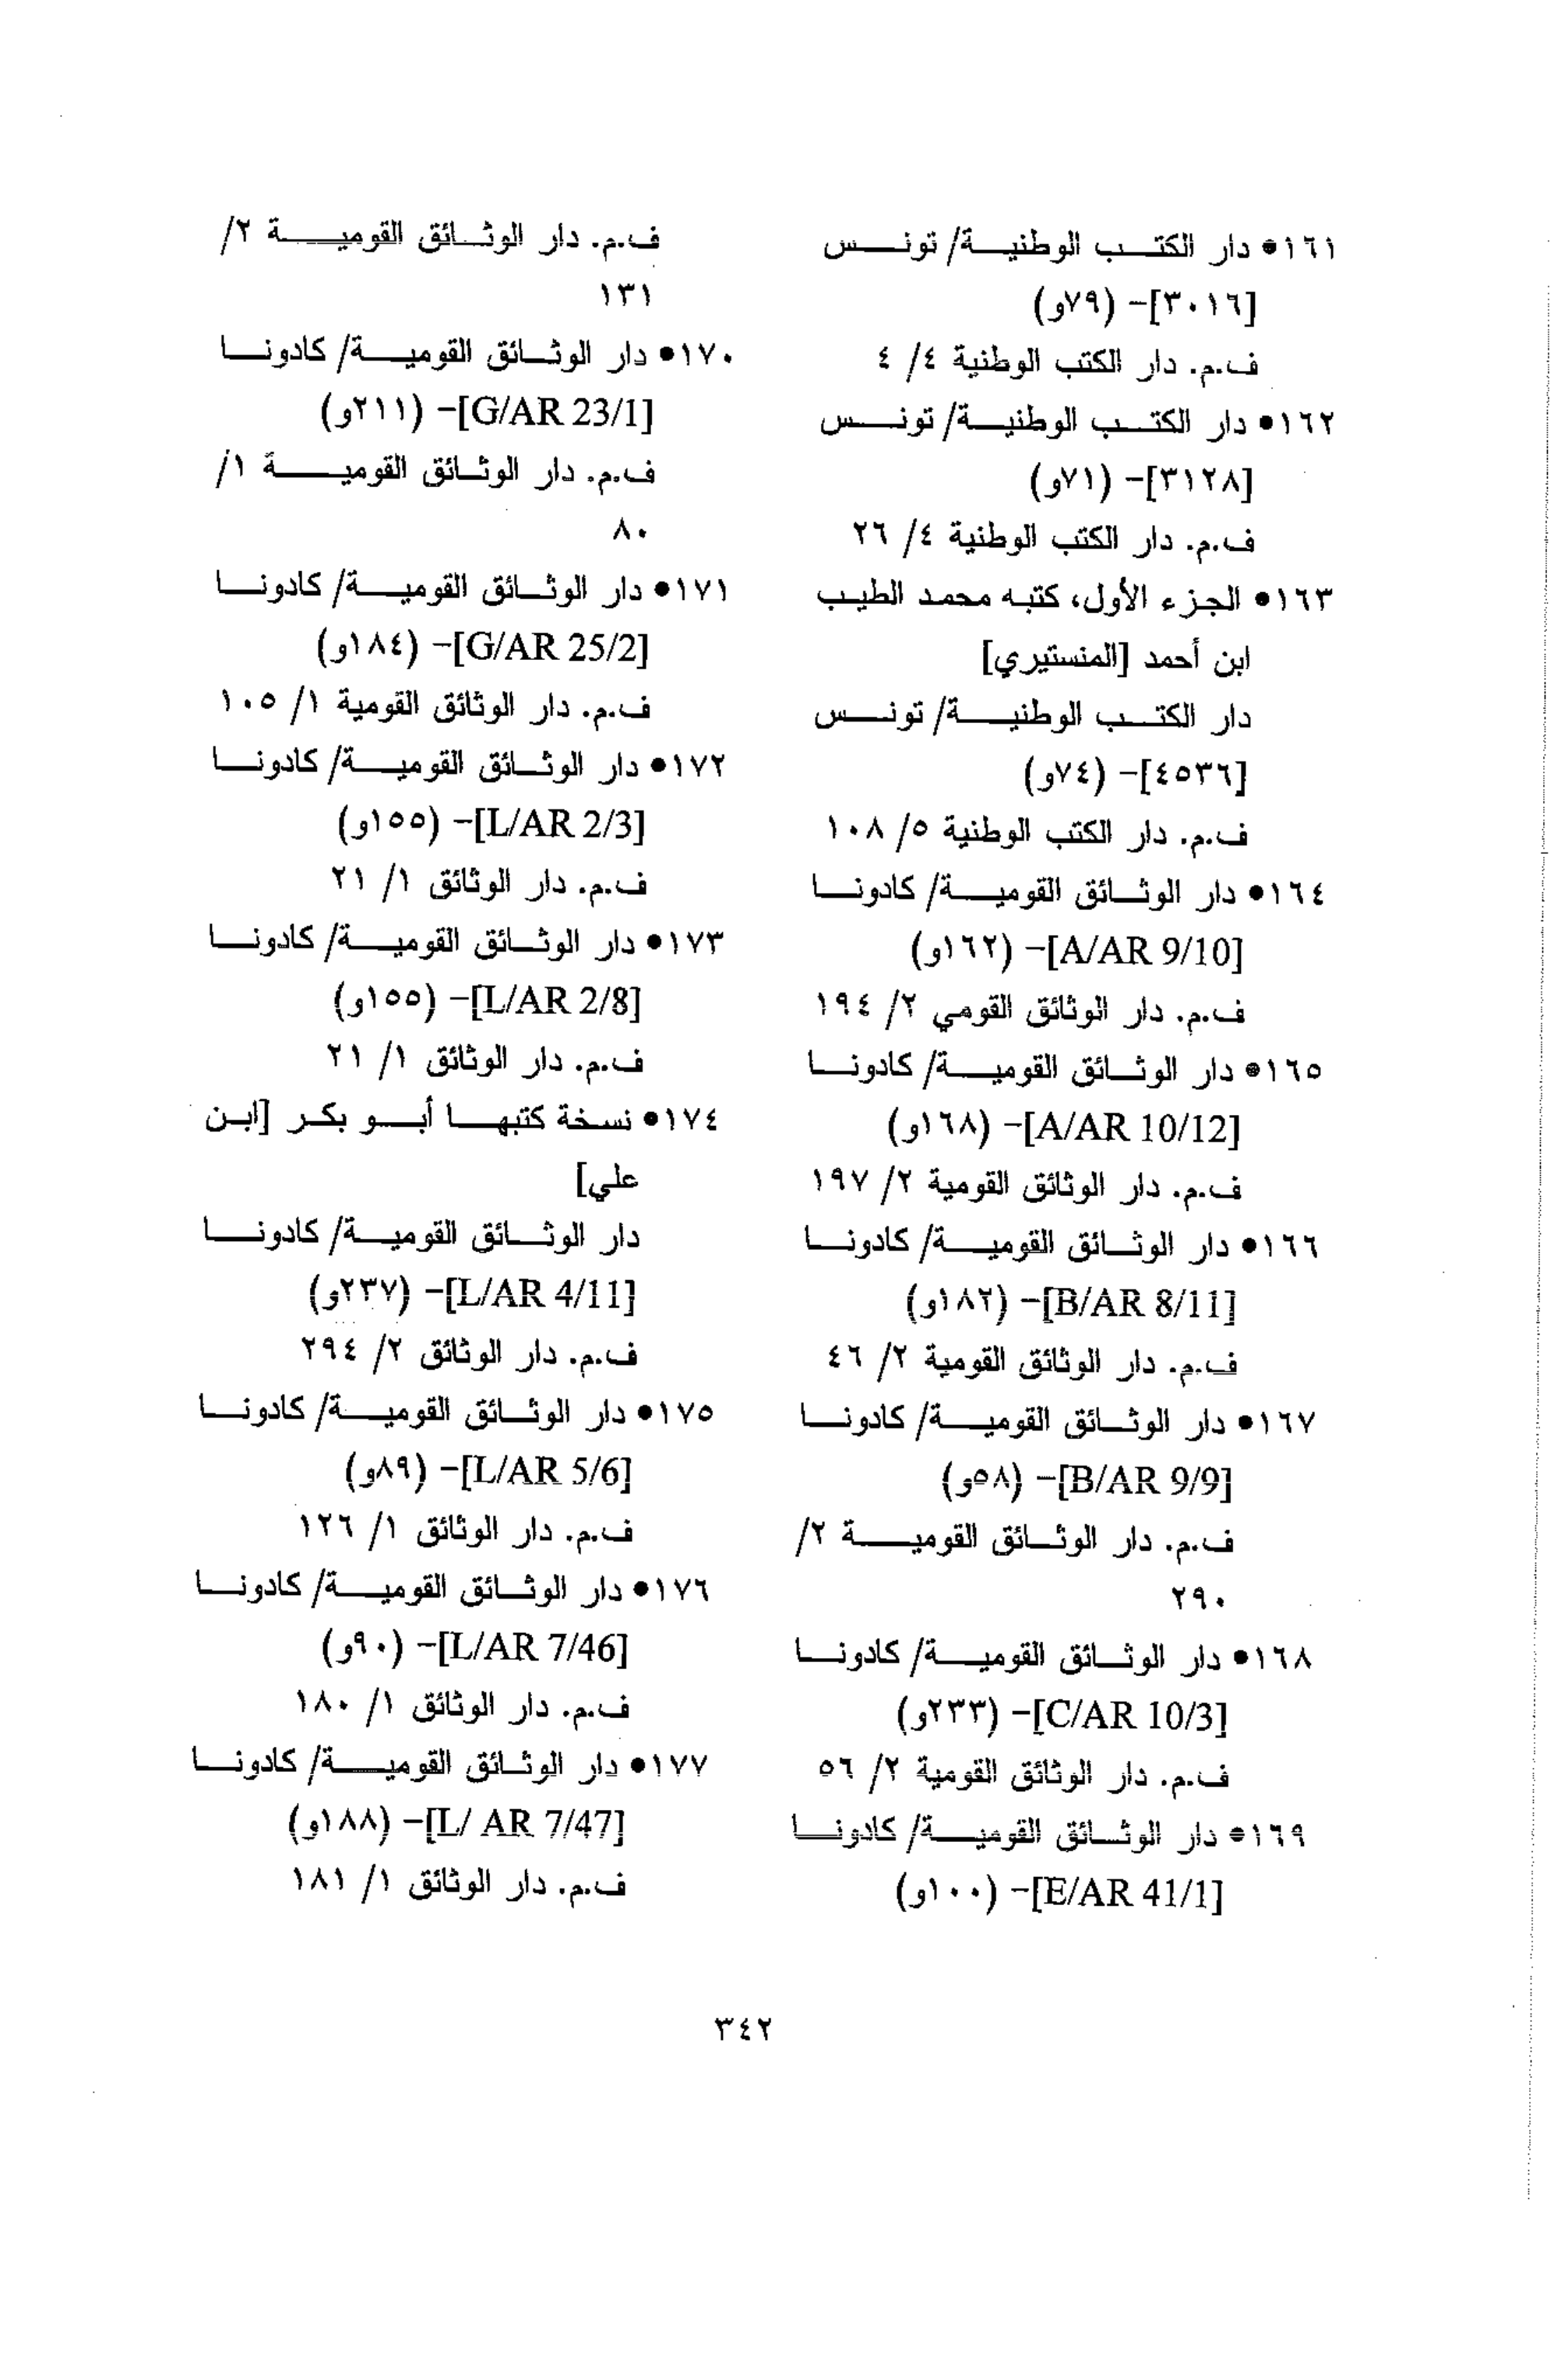 ١٦١● دار الكتب الوطنية/ تونس
[٣٠١٦]- (٧٩و)
ف.م. دار الكتب الوطنية ٤/ ٤
١٦٢● دار الكتب الوطنية/ تونس
[٣١٢٨]- (٧١و)
ف.م. دار الكتب الوطنية ٤/ ٢٦
١٦٣● الجزء الأول، كتبه محمد الطيب
ابن أحمد [المنستيري]
دار الكتب الوطنية/ تونس
[٤٥٣٦]- (٧٤و)
ف.م. دار الكتب الوطنية ٥/ ١٠٨
١٦٤● دار الوثائق القومية/ كادونا
[A/AR 9/10]- (١٦٢و)
ف.م. دار الوثائق القومي ٢/ ١٩٤
١٦٥● دار الوثائق القومية/ كادونا
[A/AR 10/12]- (١٦٨و)
ف.م. دار الوثائق القومية ٢/ ١٩٧
١٦٦● دار الوثائق القومية/ كادونا
[B/AR 8/11]- (١٨٢و)
ف.م. دار الوثائق القومية ٢/ ٤٦
١٦٧● دار الوثائق القومية/ كادونا
[B/AR 9/9]- (٥٨و)
ف.م. دار الوثائق القومية ٢/
٢٩٠
١٦٨● دار الوثائق القومية/ كادونا
[C/AR 10/3]- (٢٣٣و)
ف.م. دار الوثائق القومية ٢/ ٥٦
١٦٩● دار الوثائق القومية/ كادونا
[E/AR 41/1]- (١٠٠و)
ف.م. دار الوثائق القومية ٢/
١٣١
١٧٠● دار الوثائق القومية/ كادونا
[G/AR 23/1]- (٢١١و)
ف.م. دار الوثائق القومية ١/
٨٠
١٧١● دار الوثائق القومية/ كادونا
[G/AR 25/2]- (١٨٤و)
ف.م. دار الوثائق القومية ١/ ١٠٥
١٧٢● دار الوثائق القومية/ كادونا
[L/AR 2/3]- (١٥٥و)
ف.م. دار الوثائق ١/ ٢١
١٧٣● دار الوثائق القومية/ كادونا
[L/AR 2/8]- (١٥٥و)
ف.م. دار الوثائق ١/ ٢١
١٧٤● نسخة كتبها أبو بكر [ابن
علي]
دار الوثائق القومية/ كادونا
[L/AR 4/11]- (٢٣٧و)
ف.م. دار الوثائق ٢/ ٢٩٤
١٧٥● دار الوثائق القومية/ كادونا
[L/AR 5/6]- (٨٩و)
ف.م. دار الوثائق ١/ ١٢٦
١٧٦● دار الوثائق القومية/ كادونا
[L/AR 7/46]- (٩٠و)
ف.م. دار الوثائق ١/ ١٨٠
١٧٧● دار الوثائق القومية/ كادونا
[L/ AR 7/47]- (١٨٨و)
ف.م. دار الوثائق ١/ ١٨١
٣٤٢